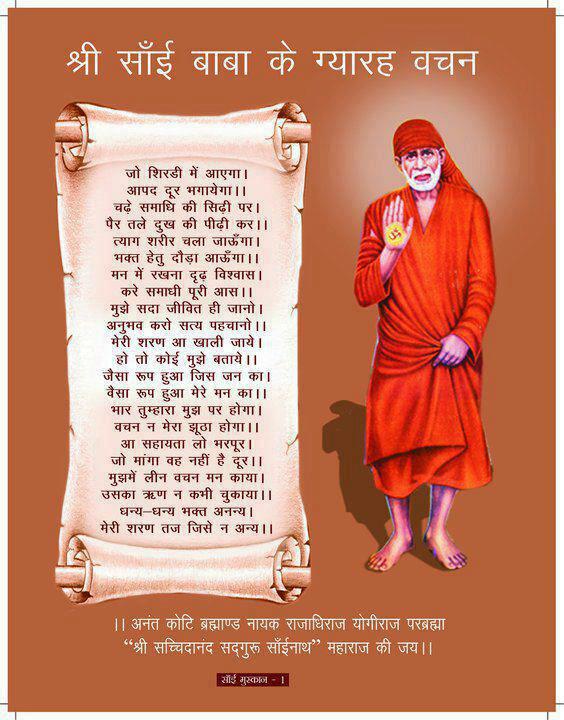 श्री साँई बाबा के ग्यारह वचन
जो शिरडी में आएगा।
आपद दूर भगायेगा।।
चढ़े समाधि की सिढ़ी पर।
पैर तले दुख की पीढ़ी कर।।
त्याग शरीर चला जाऊँगा।
भक्त हेतु दौड़ा आऊँगा।।
मन में रखना दृढ़ विश्वास।
करे समाधी पूरी आस।।
मुझे सदा जीवित ही जानो।
अनुभव करो सत्य पहचानो।।
मेरी शरण आ खाली जाये।
हो तो कोई मुझे बताये।।
जैसा रूप हुआ जिस जन का।
वैसा रूप हुआ मेरे मन का।।
भार तुम्हारा मुझ पर होगा।
वचन न मेरा झूठा होगा।।
आ सहायता लो भरपूर।
जो मांगा वह नहीं है दूर।।
मुझमें लीन वचन मन काया।
उसका ऋण न कभी चुकाया।।
धन्य–धन्य भक्त अनन्य।
मेरी शरण तज जिसे न अन्य।।
ॐ
।। अनंत कोटि ब्रह्माण्ड नायक राजाधिराज योगीराज परब्रह्मा
“श्री सच्चिदानंद सद्‌गुरू साँईनाथ” महाराज की जय।।
साँई मुस्कान - 1